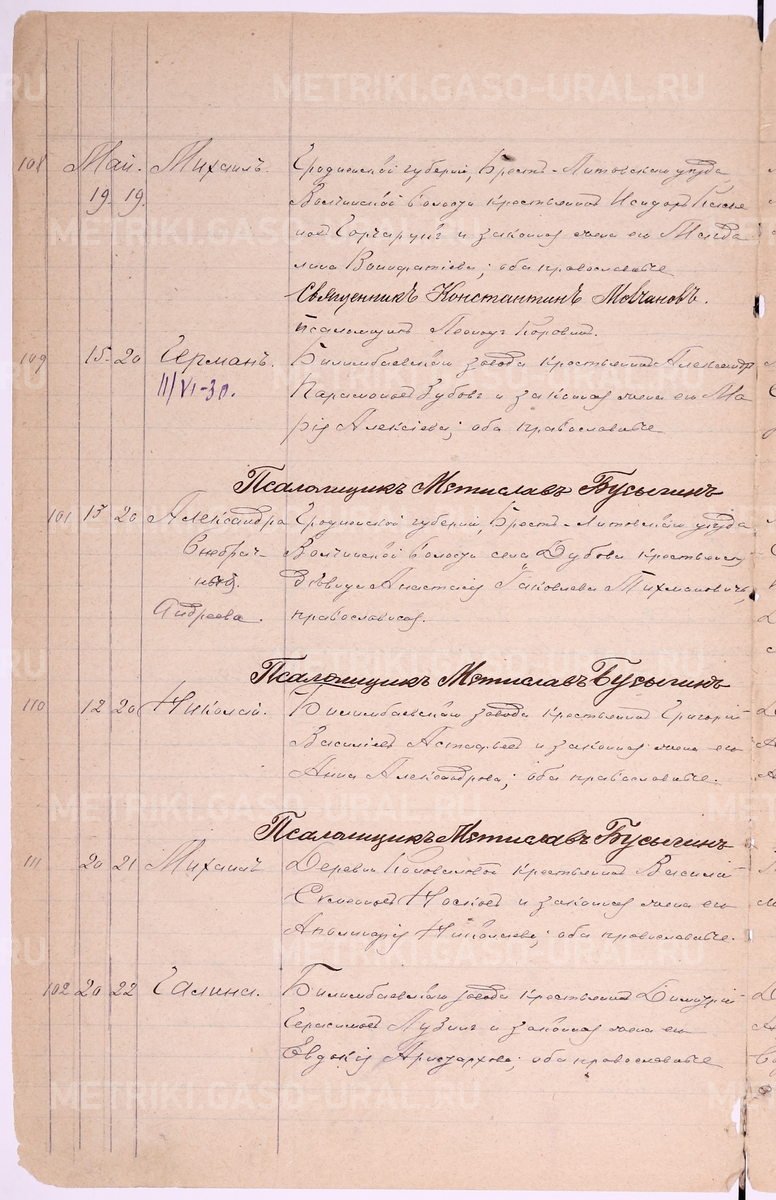 108 Май. Михаилъ. Гродненской губерніи, Брестъ-Литовскаго уѣзда
19. 19. Волчинской волости крестьянинъ Исидоръ
Гончарукъ и законная жена его Магда
лина Вонифатіева; оба православные
Священникъ Константинъ Мовчановъ.
Псаломщикъ Леонидъ Коровинъ.
109 15 20 Германъ. Билимбаевскаго завода крестьянинъ Александръ
II/VI-30. Парамоновъ Зубовъ и законная жена его Ма
рія Алексіева; оба православные
Псаломщикъ Мстиславъ Бусыгинъ
101 13 20 Александра Гродненской губерніи, Брестъ-Литовскаго уѣзда
Внебрач- Волчинской волости села Дубова крестьянская
ный. дѣвица Анастасія Яковлева Тихмановичъ,
Андреева. православная.
Псаломщикъ Мстиславъ Бусыгинъ
110 12 20 Николай. Билимбаевскаго завода крестьянинъ Григорій
Василіевъ Астафьевъ и законная жена его
Анна Александрова; оба православные.
Псаломщикъ Мстиславъ Бусыгинъ
111 20 21 Михаилъ Деревни Коноваловой крестьянинъ Василій
Семеновъ Носковъ и законная жена его
Аполинарія Николаева; оба православные.
102 20 22 Галина. Билимбаевскаго завода крестьянинъ Димитрій
Герасимовъ Лузинъ и законная жена его
Евдокія Аристархова; оба православные